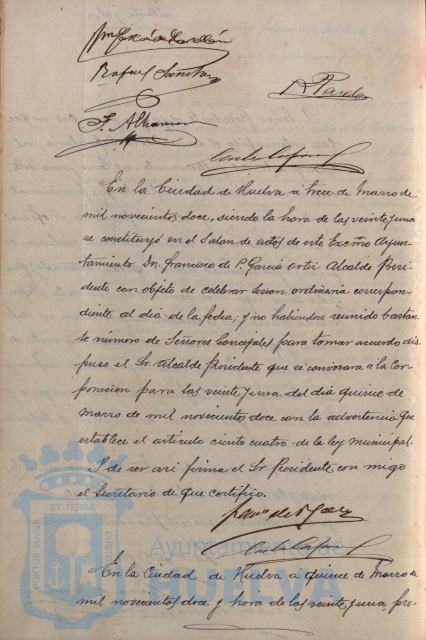 Rafael Sanchez
A. Pardo
En la Ciudad de Huelva á trece de Marzo de
mil novecientos doce, siendo la hora de las veinte y una
se constituyó en el Salon de actos de este Excmo Ayun-
tamiento Dn. Francisco de P. García Ortiz Alcalde Presi-
dente con objeto de celebrar sesion ordinaria correspon-
diente al dia de la fecha, y no habiendose reunido bastan-
te número de Señores Concejales para tomar acuerdo dis-
puso el Sr. Alcalde Presidente que se convocara á la Cor-
poracion para las veinte y una del dia quince de
Marzo de mil novecientos doce con la advertencia que
establece el articulo ciento cuatro de la ley municipal.
Y de ser asi firma el Sr Presidente con migo
el Secretario de que certifico.
En la Ciudad de Huelva á quince de Marzo de
mil novecientos doce y hora de las veinte y una pre-
PORTUS MARIS ET TERRAE CUSTODIA
Ayuntamiento de
HUELVA